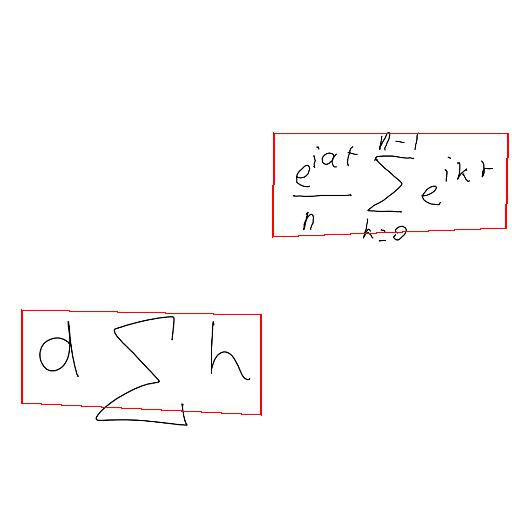 \frac{e^{iat}}{n} \sum_{k=0}^{n-1} e^{ikt}
d \sum h